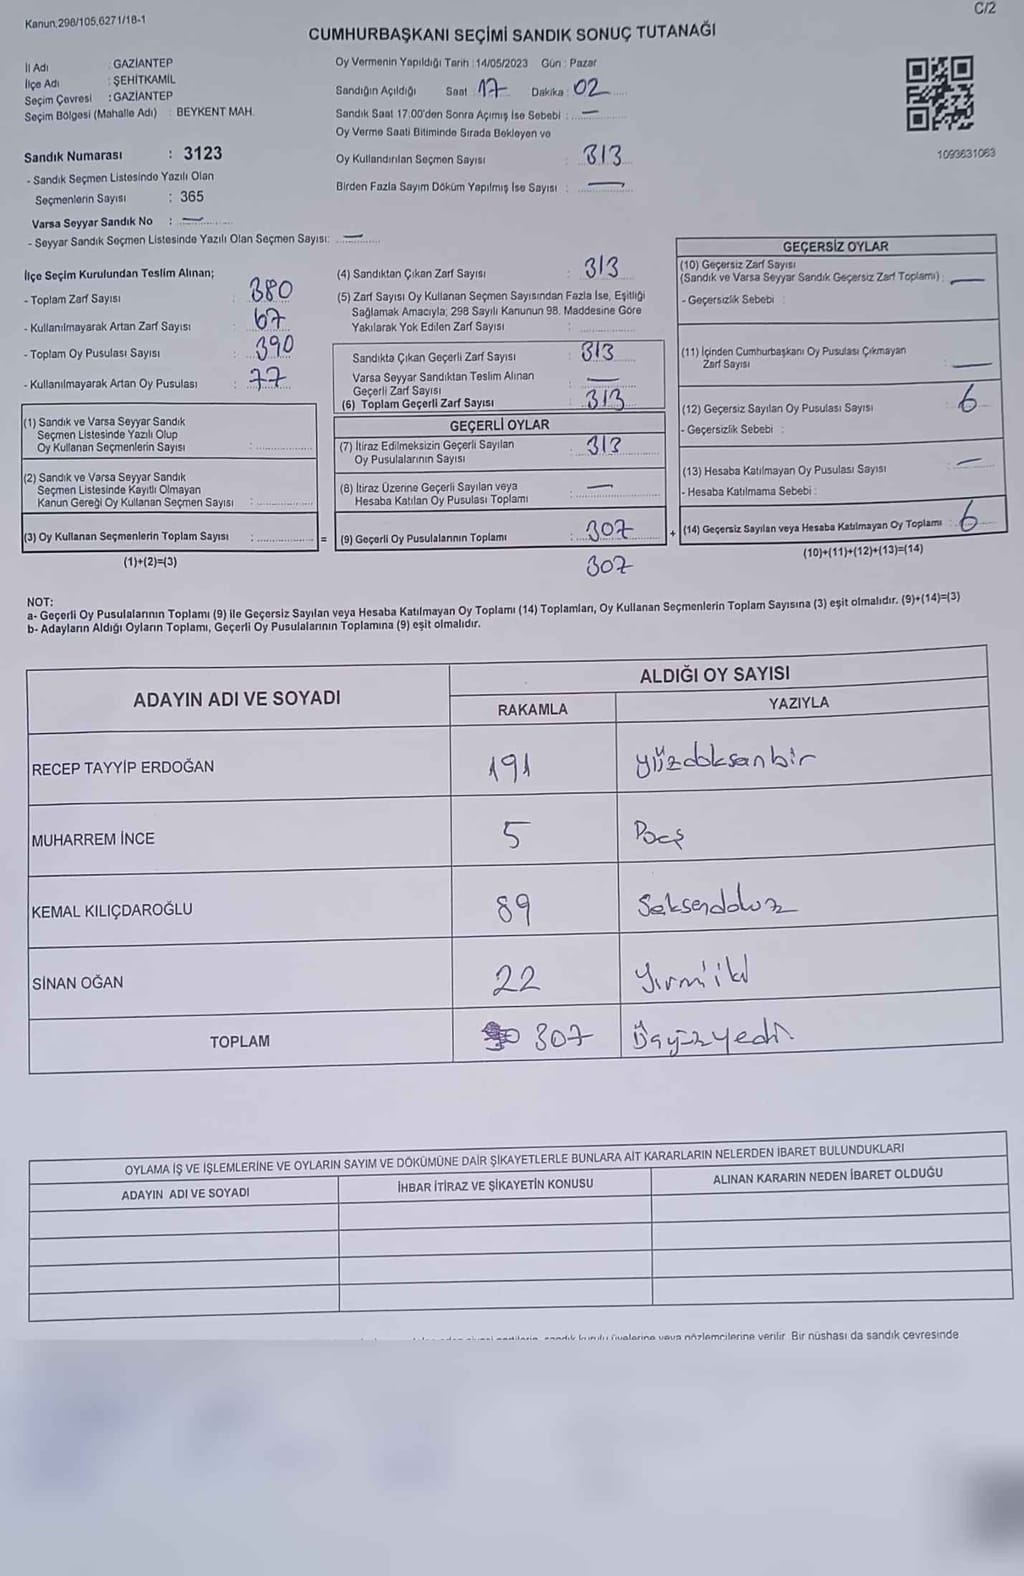 C/2
Kanun,298/105,6271/18-1
CUMHURBAŞKANI SEÇİMİ SANDIK SONUÇ TUTANAĞI
İl Adı : GAZİANTEP
İlçe Adı : ŞEHİTKAMİL
Seçim Çevresi : GAZİANTEP
Seçim Bölgesi (Mahalle Adı) : BEYKENT MAH.
Sandık Numarası : 3123
- Sandık Seçmen Listesinde Yazılı Olan
Seçmenlerin Sayısı : 365
Varsa Seyyar Sandık No : —
- Seyyar Sandık Seçmen Listesinde Yazılı Olan Seçmen Sayısı: —
Oy Vermenin Yapıldığı Tarih : 14/05/2023 Gün : Pazar
Sandığın Açıldığı Saat : 17 Dakika : 02
Sandık Saat 17.00'den Sonra Açımış İse Sebebi : —
Oy Verme Saati Bitiminde Sırada Bekleyen ve
Oy Kullandırılan Seçmen Sayısı : 313
Birden Fazla Sayım Döküm Yapılmış İse Sayısı : —
1093631063
İlçe Seçim Kurulundan Teslim Alınan;
- Toplam Zarf Sayısı : 380
- Kullanılmayarak Artan Zarf Sayısı : 67
- Toplam Oy Pusulası Sayısı : 390
- Kullanılmayarak Artan Oy Pusulası : 77
(1) Sandık ve Varsa Seyyar Sandık
Seçmen Listesinde Yazılı Olup
Oy Kullanan Seçmenlerin Sayısı :
(2) Sandık ve Varsa Seyyar Sandık
Seçmen Listesinde Kayıtlı Olmayan
Kanun Gereği Oy Kullanan Seçmen Sayısı :
(3) Oy Kullanan Seçmenlerin Toplam Sayısı : =
(1)+(2)=(3)
(4) Sandıktan Çıkan Zarf Sayısı : 313
(5) Zarf Sayısı Oy Kullanan Seçmen Sayısından Fazla İse, Eşitliği
Sağlamak Amacıyla; 298 Sayılı Kanunun 98. Maddesine Göre
Yakılarak Yok Edilen Zarf Sayısı :
Sandıkta Çıkan Geçerli Zarf Sayısı : 313
Varsa Seyyar Sandıktan Teslim Alınan
Geçerli Zarf Sayısı : —
(6) Toplam Geçerli Zarf Sayısı : 313
GEÇERLİ OYLAR
(7) İtiraz Edilmeksizin Geçerli Sayılan
Oy Pusulalarının Sayısı : 313
(8) İtiraz Üzerine Geçerli Sayılan veya
Hesaba Katılan Oy Pusulası Toplamı : —
(9) Geçerli Oy Pusulalarının Toplamı : 307 +
307
GEÇERSİZ OYLAR
(10) Geçersiz Zarf Sayısı
(Sandık ve Varsa Seyyar Sandık Geçersiz Zarf Toplamı) : —
- Geçersizlik Sebebi :
(11) İçinden Cumhurbaşkanı Oy Pusulası Çıkmayan
Zarf Sayısı —
(12) Geçersiz Sayılan Oy Pusulası Sayısı : 6
- Geçersizlik Sebebi :
(13) Hesaba Katılmayan Oy Pusulası Sayısı : —
- Hesaba Katılmama Sebebi :
(14) Geçersiz Sayılan veya Hesaba Katılmayan Oy Toplamı : 6
(10)+(11)+(12)+(13)=(14)
NOT:
a- Geçerli Oy Pusulalarının Toplamı (9) ile Geçersiz Sayılan veya Hesaba Katılmayan Oy Toplamı (14) Toplamları, Oy Kullanan Seçmenlerin Toplam Sayısına (3) eşit olmalıdır. (9)+(14)=(3)
b- Adayların Aldığı Oyların Toplamı, Geçerli Oy Pusulalarının Toplamına (9) eşit olmalıdır.
ADAYIN ADI VE SOYADI
ALDIĞI OY SAYISI
RAKAMLA YAZIYLA
RECEP TAYYİP ERDOĞAN 191 yüzdoksanbir
MUHARREM İNCE 5
KEMAL KILIÇDAROĞLU 89 Seksendokuz
SİNAN OĞAN 22 Yirmiiki
TOPLAM 307 Üçyüzyedi
OYLAMA İŞ VE İŞLEMLERİNE VE OYLARIN SAYIM VE DÖKÜMÜNE DAİR ŞİKAYETLERLE BUNLARA AİT KARARLARIN NELERDEN İBARET BULUNDUKLARI
ADAYIN ADI VE SOYADI İHBAR İTİRAZ VE ŞİKAYETİN KONUSU ALINAN KARARIN NEDEN İBARET OLDUĞU
sandık kurulu üyelerine veya gözlemcilerine verilir. Bir nüshası da sandık çevresinde